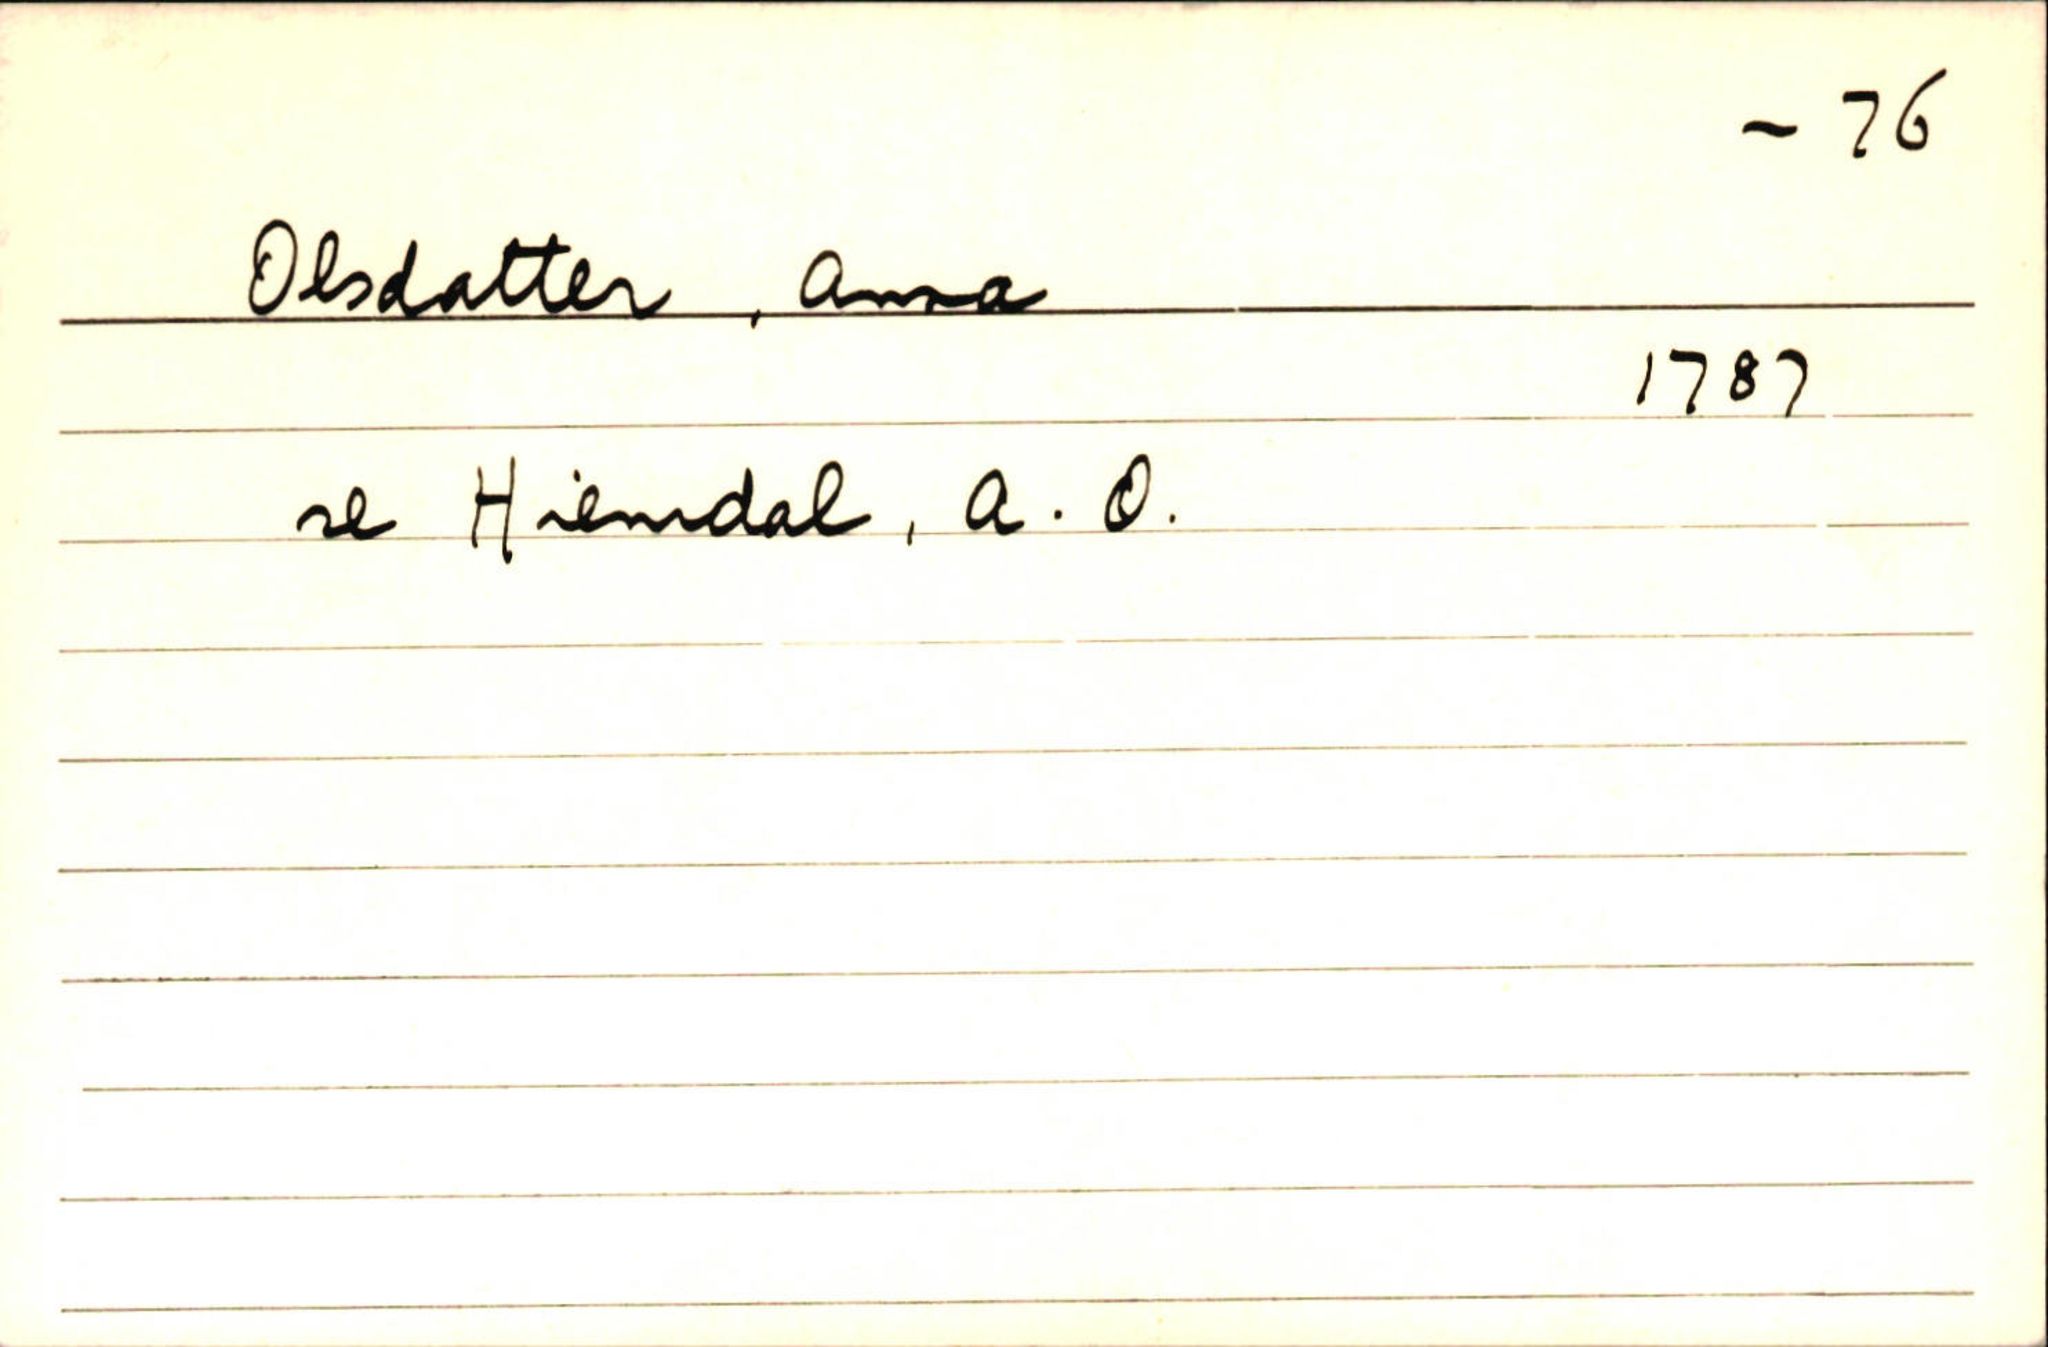 ~ 76
Olsdatter, Anna
1787
se Hiemdal, A. O.